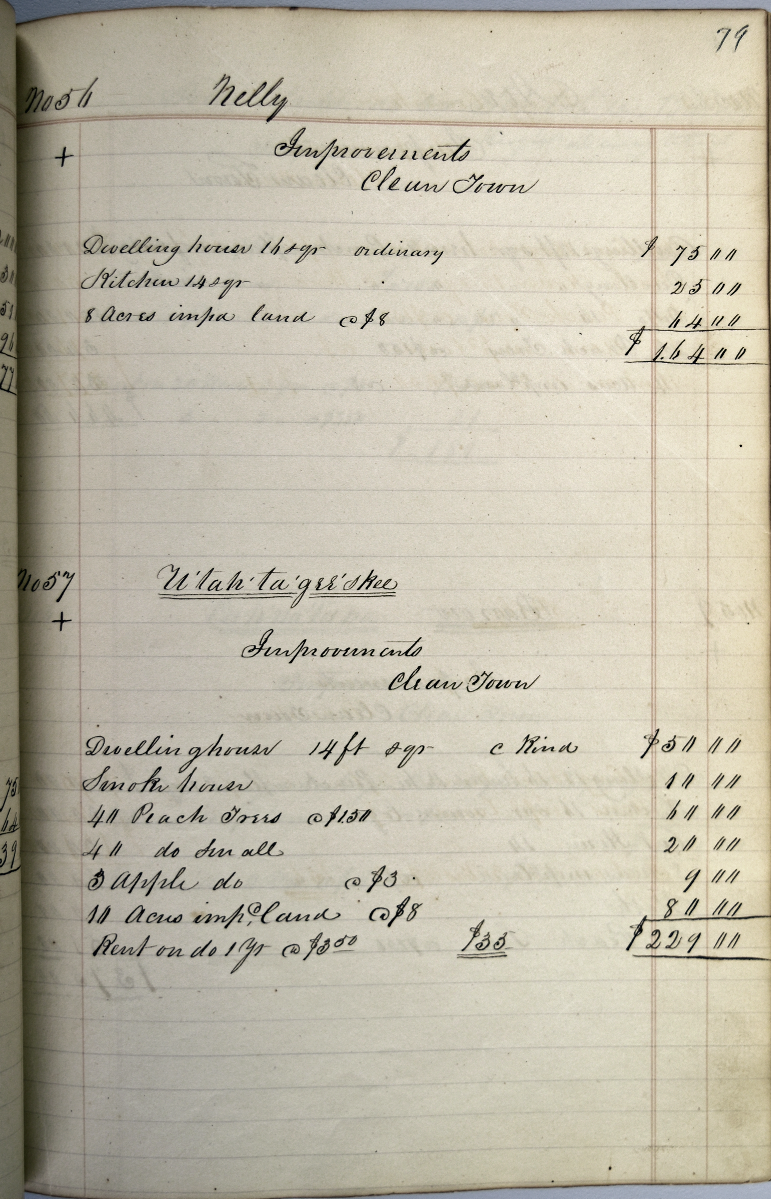 79
No 56 Nelly
+ Improvements
Clean Town
Dwelling house 16 sqr ordinary $ 75 00
Kitchen 14 sqr 25 00
8 Acres impd land @ $8 64 00
$ 164 00
No 57 U'tah'ta'gee'skee
+
Improvements
Clean Town
Dwelling house 14 ft sqr c Kind $50 00
Smoke house 10 00
40 Peach Trees @ $1.50 60 00
40 do small 20 00
3 Apple do @ $3 9 00
10 Acres impd land @ $8 80 00
Rent on do 1 Yr @ $3 50 $35 $229 00